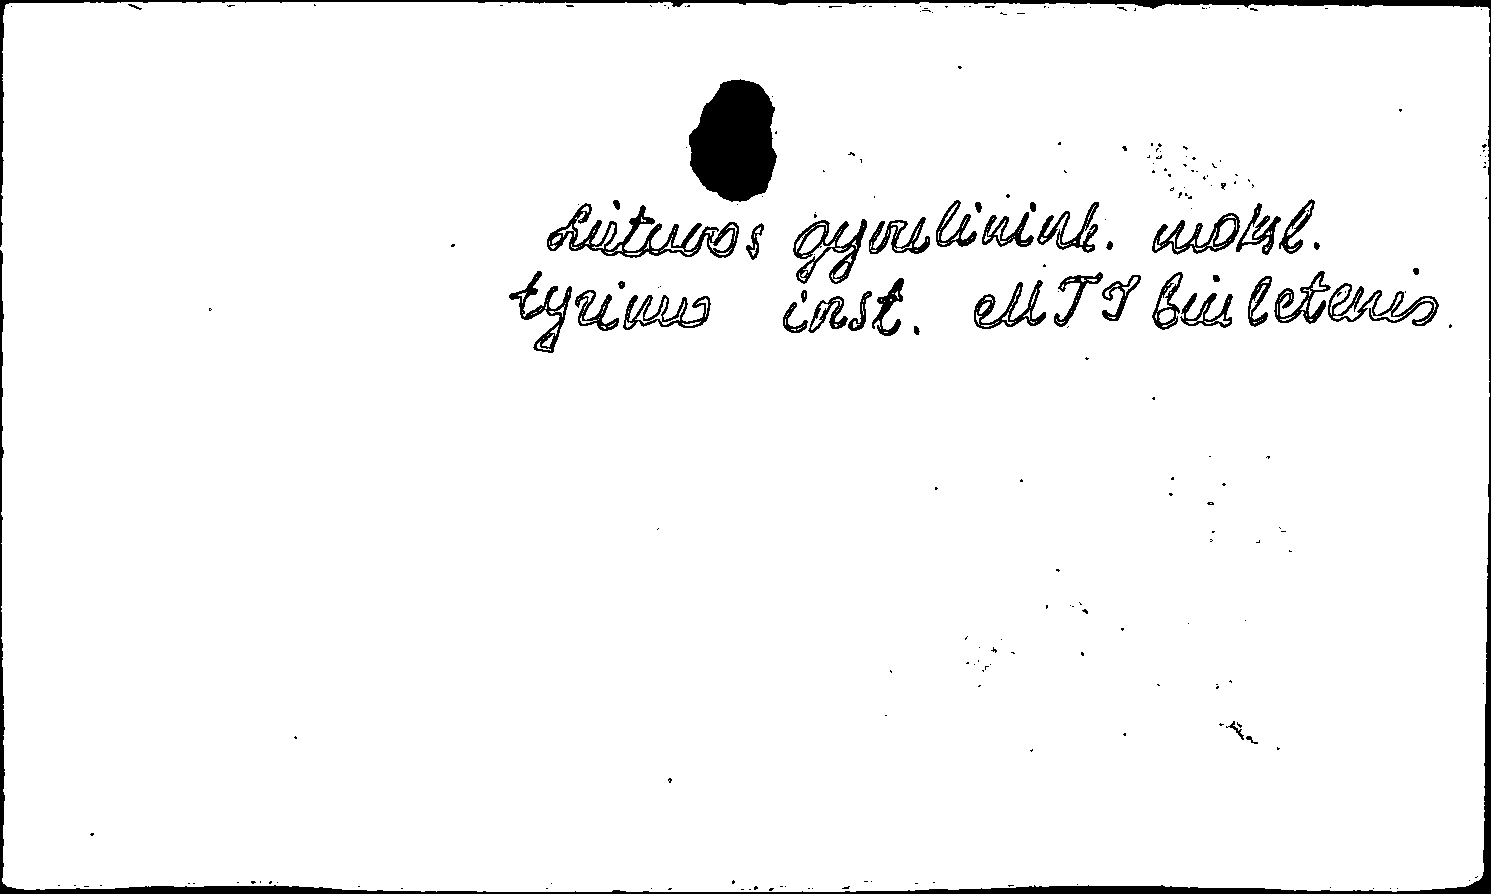 Lietuvos gyvulinink. moksl.
tyrimo inst. MTI biuletenis